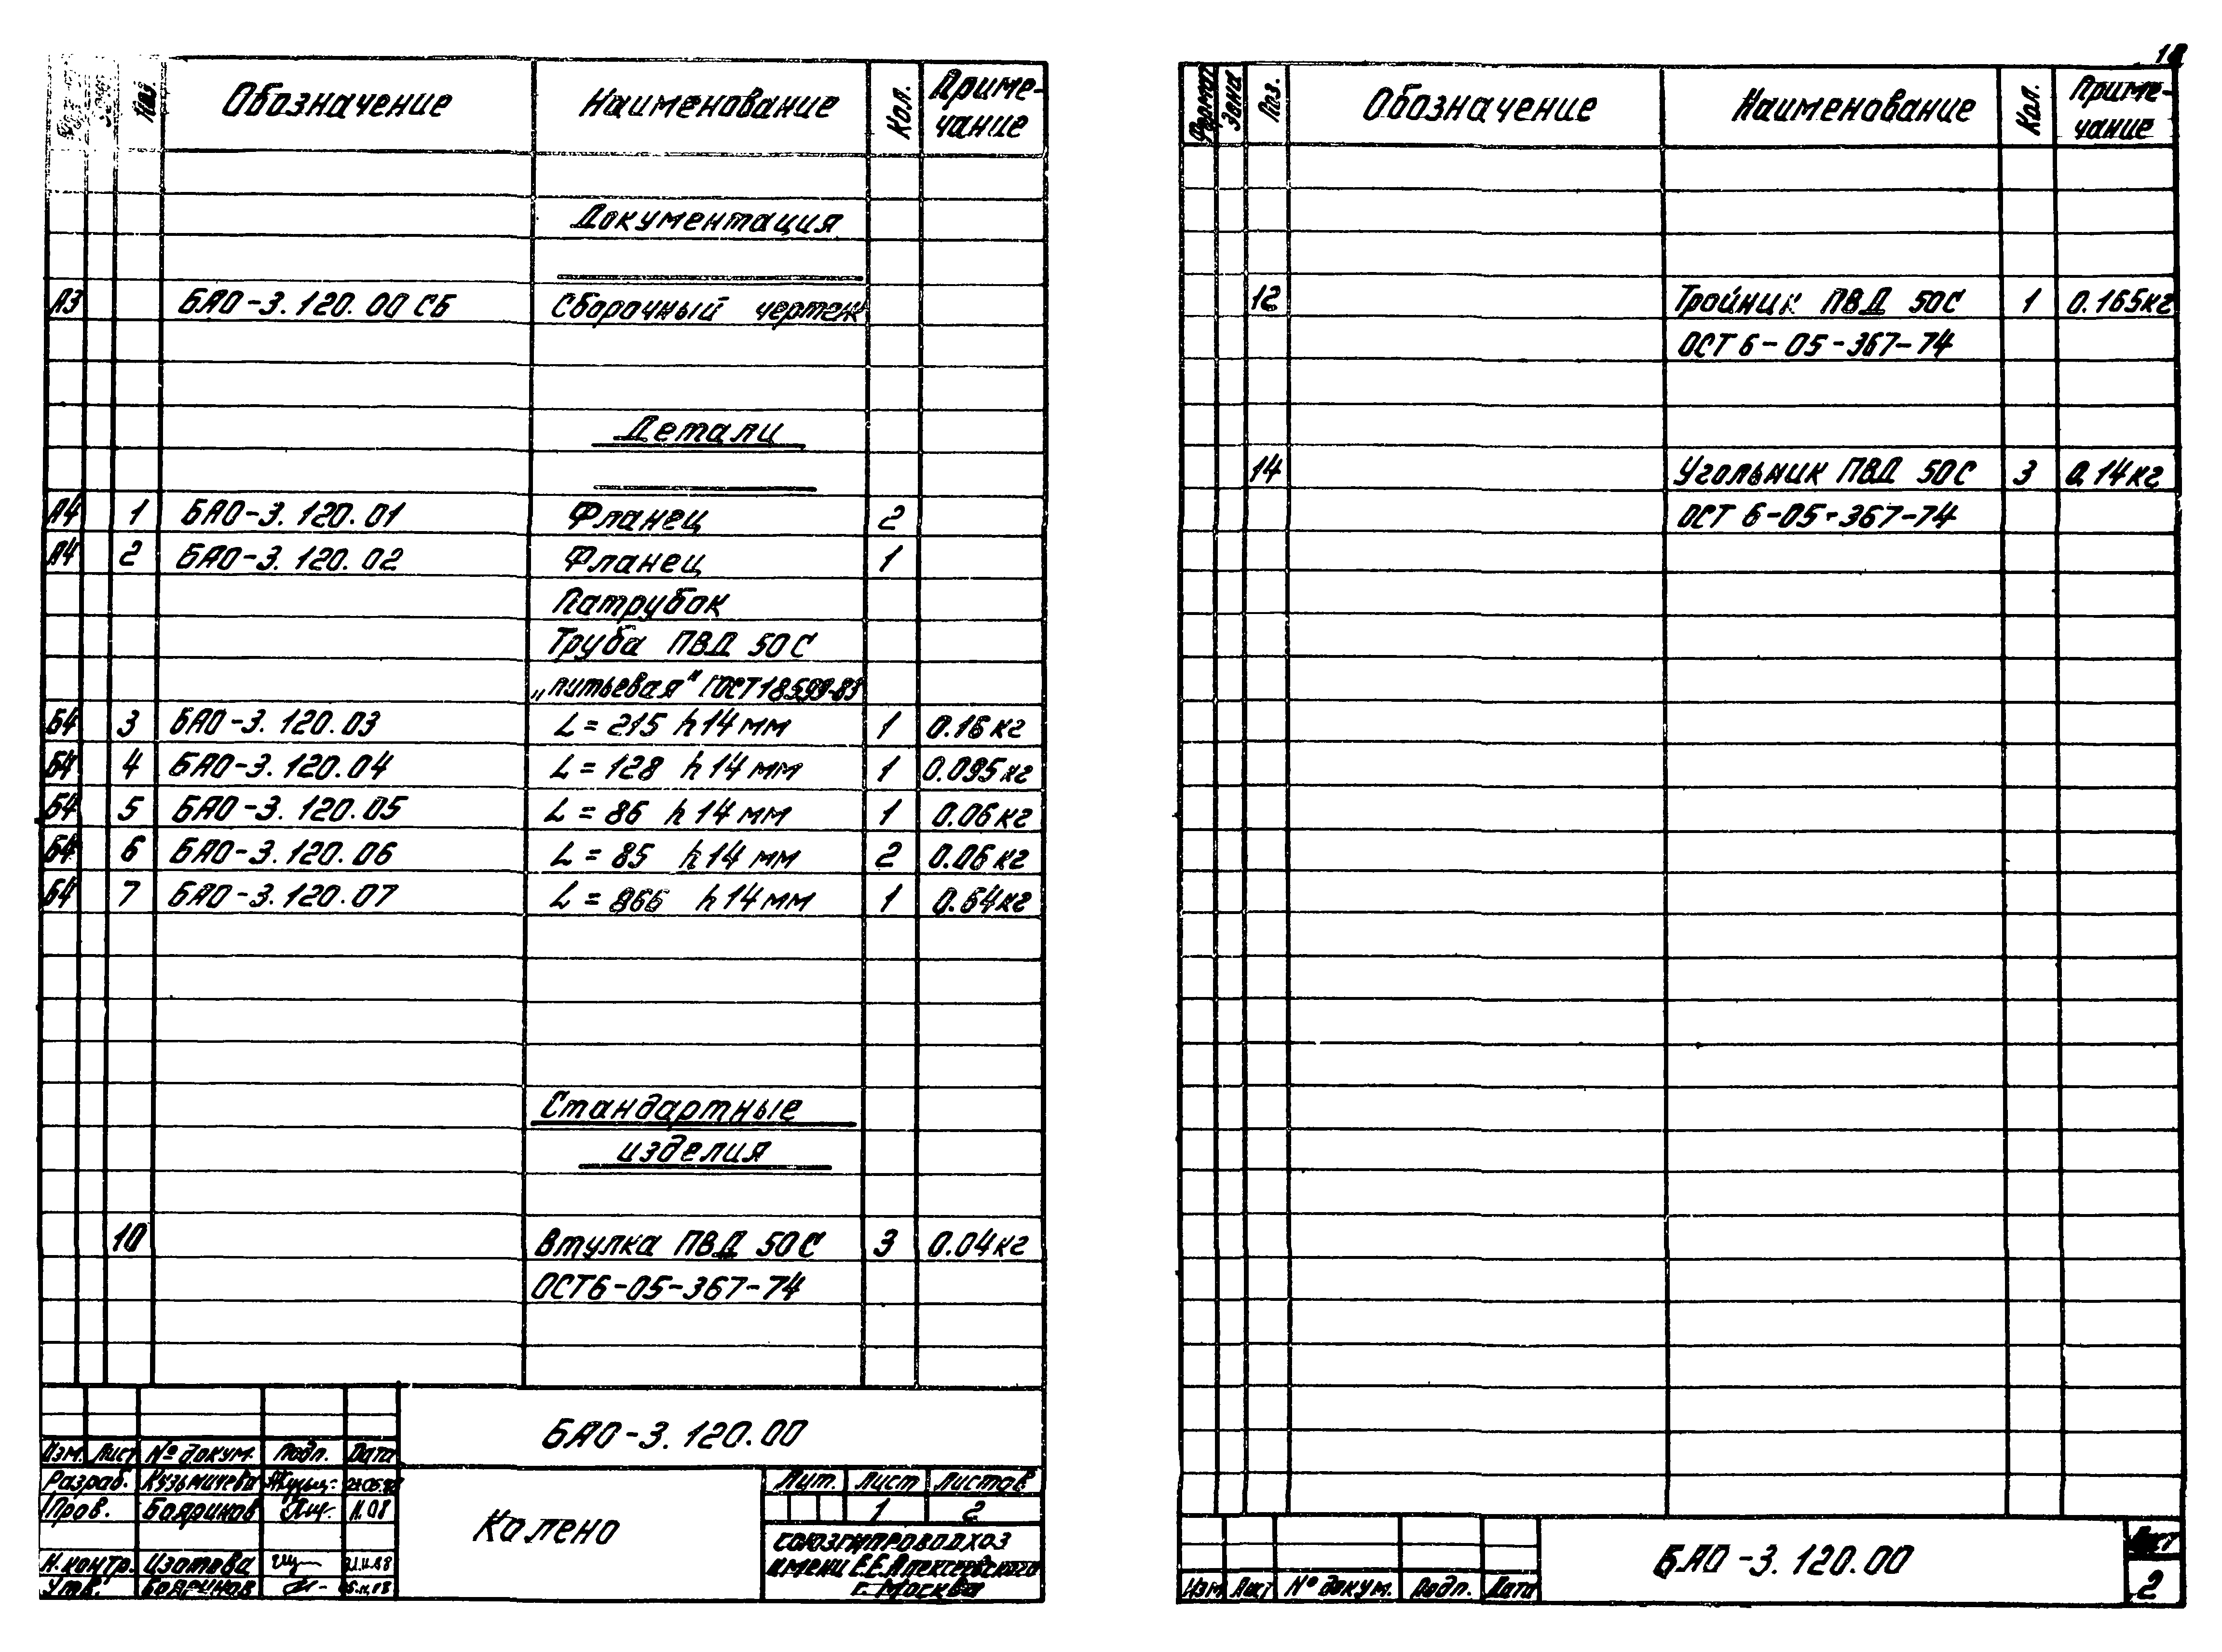 Поз. Обозначение Наименование Кол. Приме-
чание
Документация
А3 БАО-3.120.00 СБ Сборочный чертеж
Детали
А4 1 БАО-3.120.01 Фланец 2
А4 2 БАО-3.120.02 Фланец 1
Патрубок
Труба ПВД 50С
„питьевая" ГОСТ 18599-83
Б4 3 БАО-3.120.03 L=215 h14 мм 1 0.16 кг
Б4 4 БАО-3.120.04 L=128 h14 мм 1 0.095 кг
Б4 5 БАО-3.120.05 L=86 h14 мм 1 0.06 кг
Б4 6 БАО-3.120.06 L=85 h14 мм 2 0.06 кг
Б4 7 БАО-3.120.07 L=866 h14 мм 1 0.64 кг
Стандартные
изделия
10 Втулка ПВД 50С 3 0.04 кг
ОСТ6-05-367-74
БАО-3.120.00
Изм. Лист № докум. Подп. Дата
Разраб. Кузьмичева
Пров. Бояринов 11.08
Н.контр. Изотова
Утв. Бояринов
Колено
Лит. Лист Листов
1 2
СОЮЗГИПРОВОДХОЗ
имени Е.Е.Алексеевского
г. Москва
Формат Зона Поз. Обозначение Наименование Кол. Приме-
чание
12 Тройник ПВД 50С 1 0.165 кг
ОСТ 6-05-367-74
14 Угольник ПВД 50С 3 0.14 кг
ОСТ 6-05-367-74
Изм Лист № докум. Подп. Дата
БАО-3.120.00
Лист
2